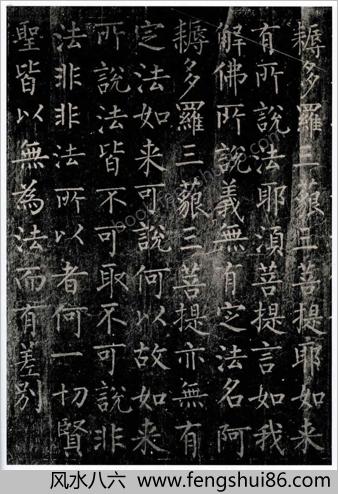 耨多羅三藐三菩提耶如来
有所說法耶須菩提言如我
解佛所說義無有定法名阿
耨多羅三藐三菩提亦無有
定法如来可說何以故如来
所說法皆不可取不可說非
法非非法所以者何一切賢
聖皆以無為法而有差别
风水八六 www.fengshui86.com